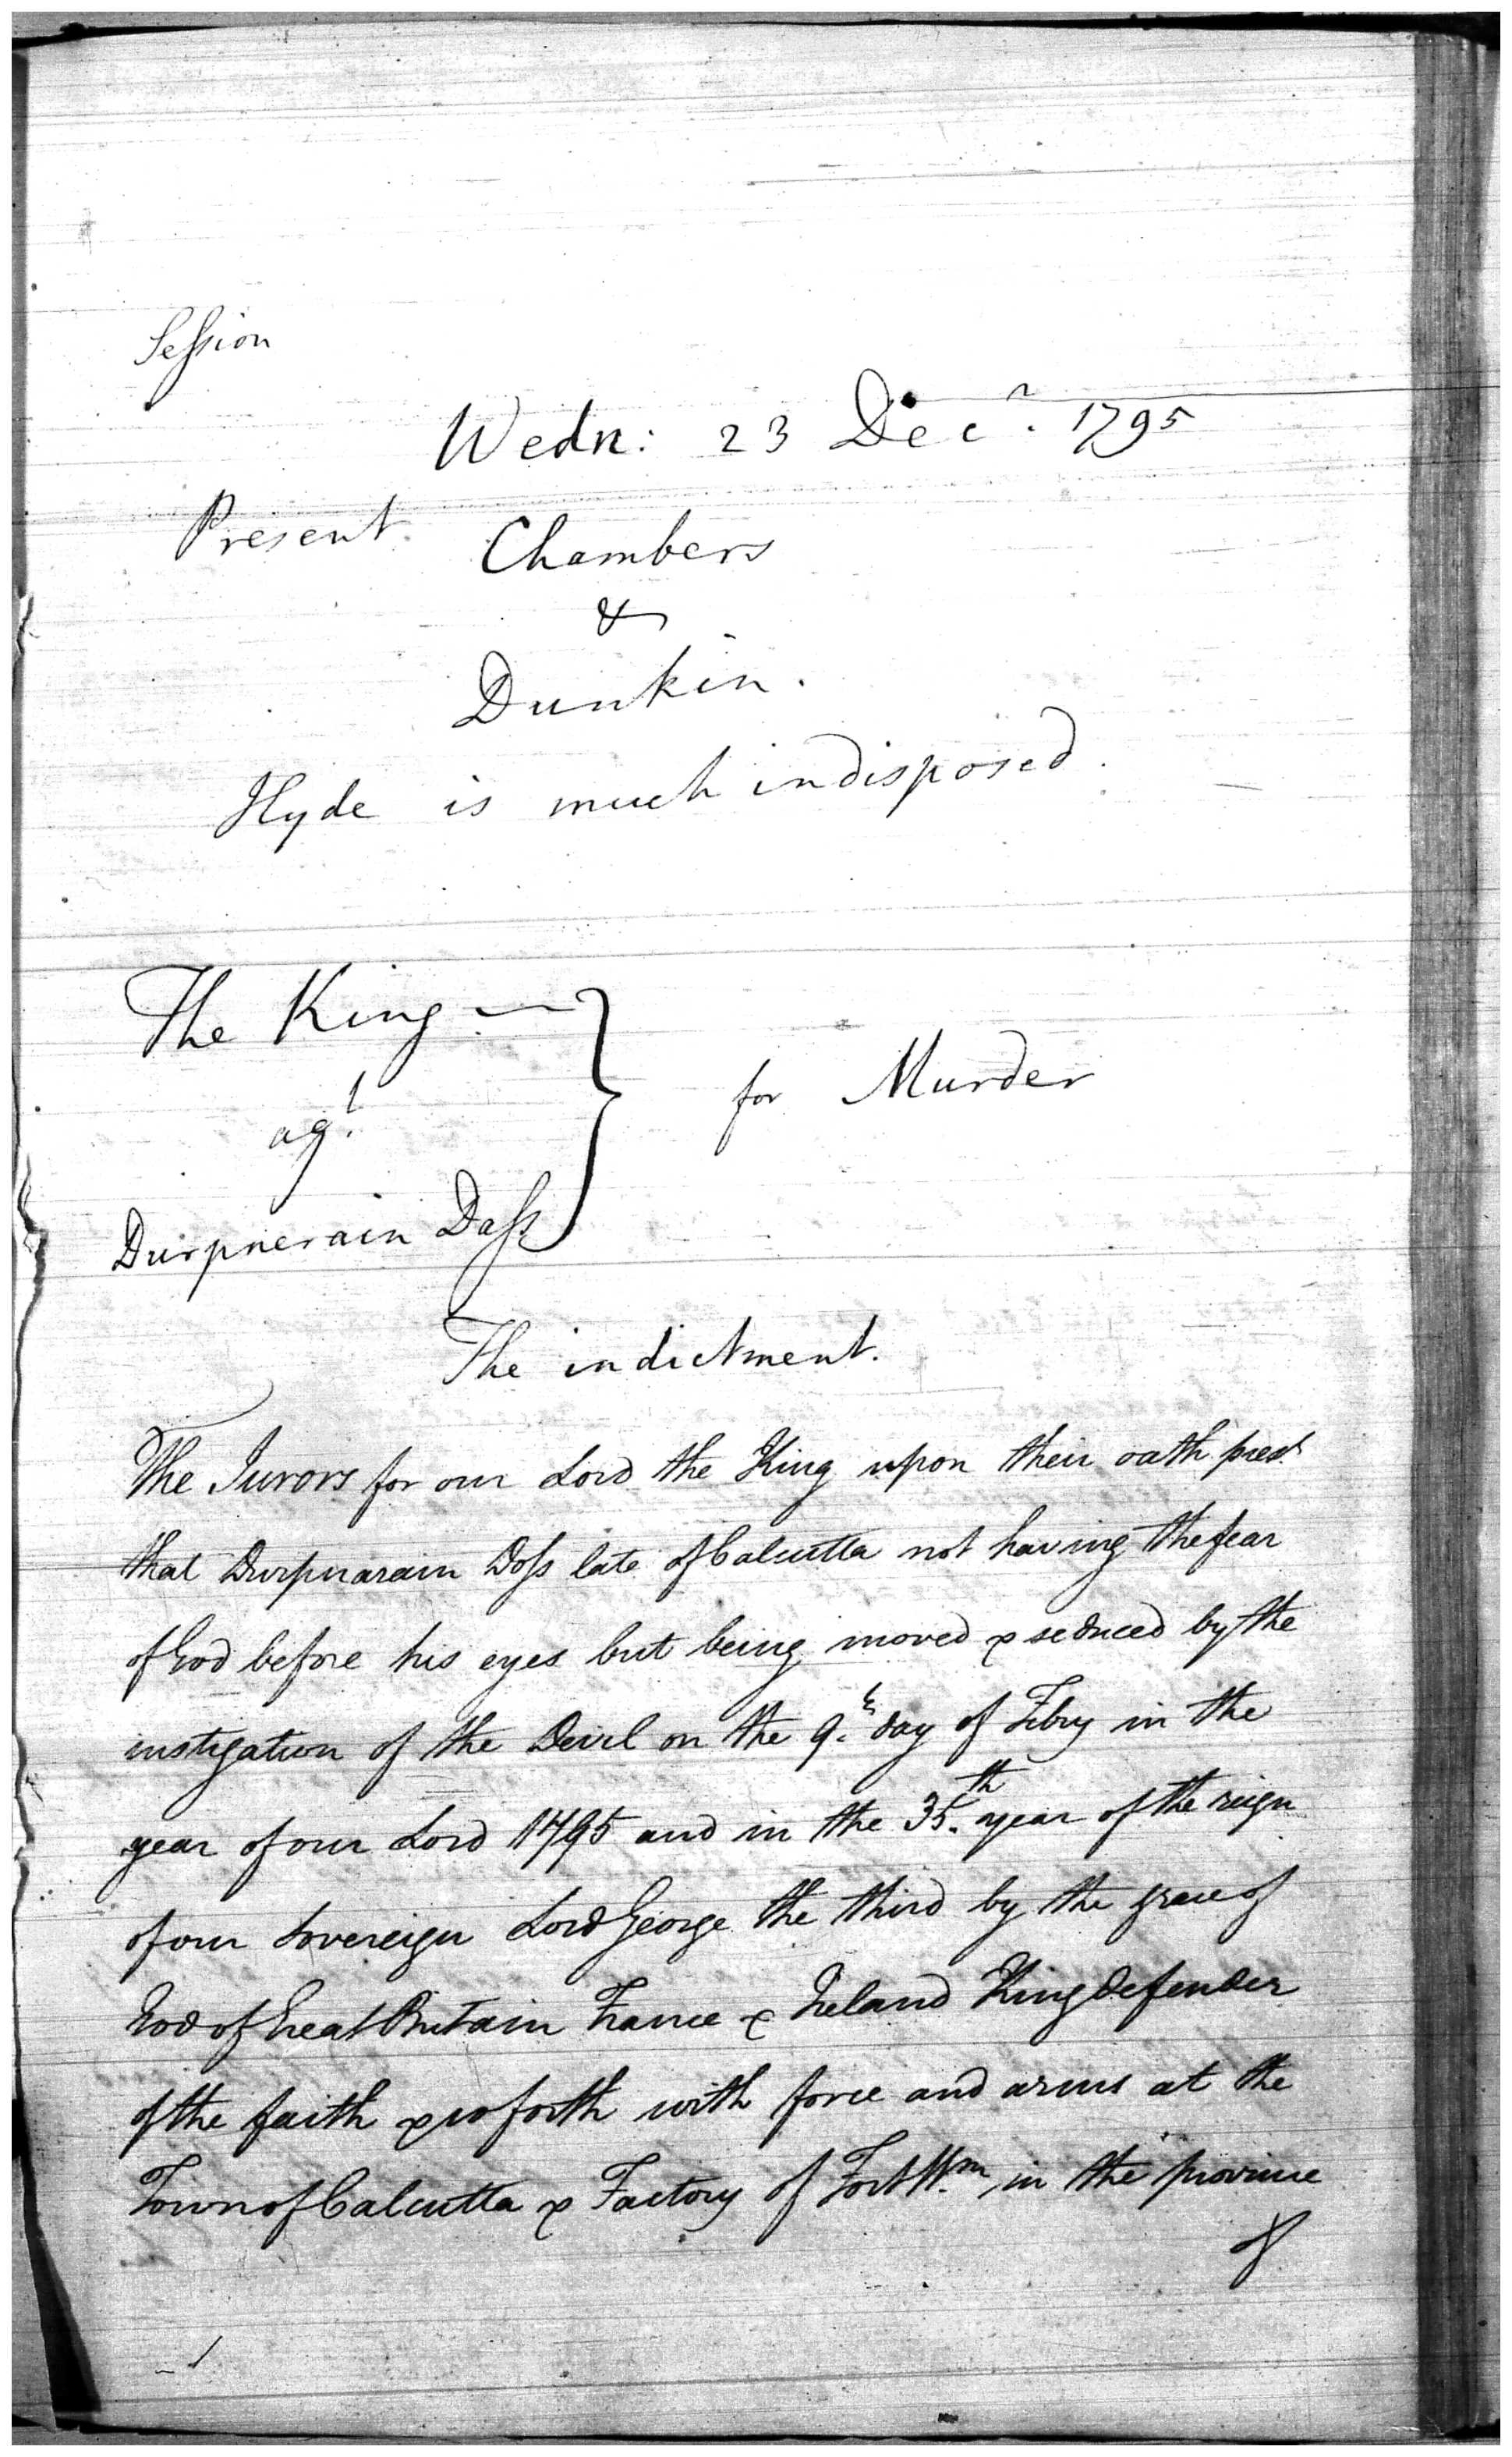 Session
Wedn: 23 Decr. 1795
Present Chambers
&
Dunkin.
Hyde is much indisposed.
The King —
agt.
for Murder
Durpnerain Dass
The indictment.
The Jurors for our Lord the King upon their oath prest.
that Durpnarain Doss late of Calcutta not having the fear
of God before his eyes but being moved & seduced by the
instigation of the Devil on the 9.th day of Febry in the
year of our Lord 1795 and in the 35.th year of the reign
of our Sovereign Lord George the third by the grace of
God of Great Britain France & Ireland King defender
of the faith & so forth with force and arms at the
Town of Calcutta & Factory of Fort Wm. in the province
of